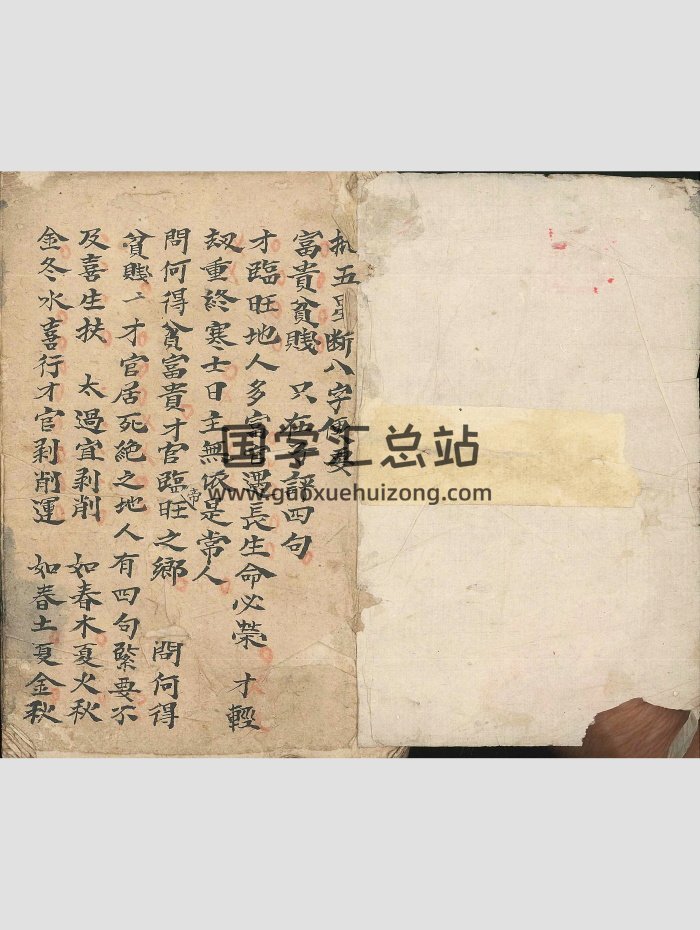 批五星断八字便要
富貴貧賤 只在子評四句
才臨旺地人多富 官遇長生命必榮 才輕
劫重终寒士日主無依是常人
問何得貧富貴才官臨旺之鄉 問何得
帝
貧賤亡才官居死絶之地人有四句緊要不
及喜生扶 太過宜剥削 如春木夏火秋
金冬水喜行才官剥削運 如春土夏金秋
国学汇总站
www.guoxuehuizong.com